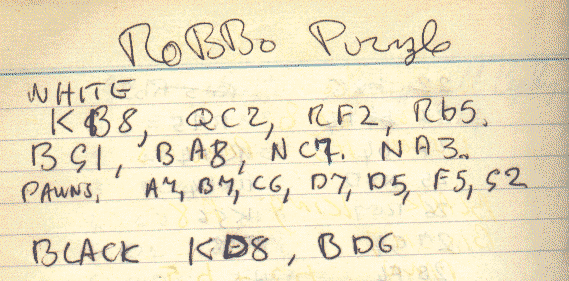 RoBBo Puzzle
WHITE
KB8, QC2, RF2, Rb5.
BG1, BA8, NC7. NA3.
PAWNS, A7, B7, C6, D7, D5, F5, G2
BLACK KD8, BD6